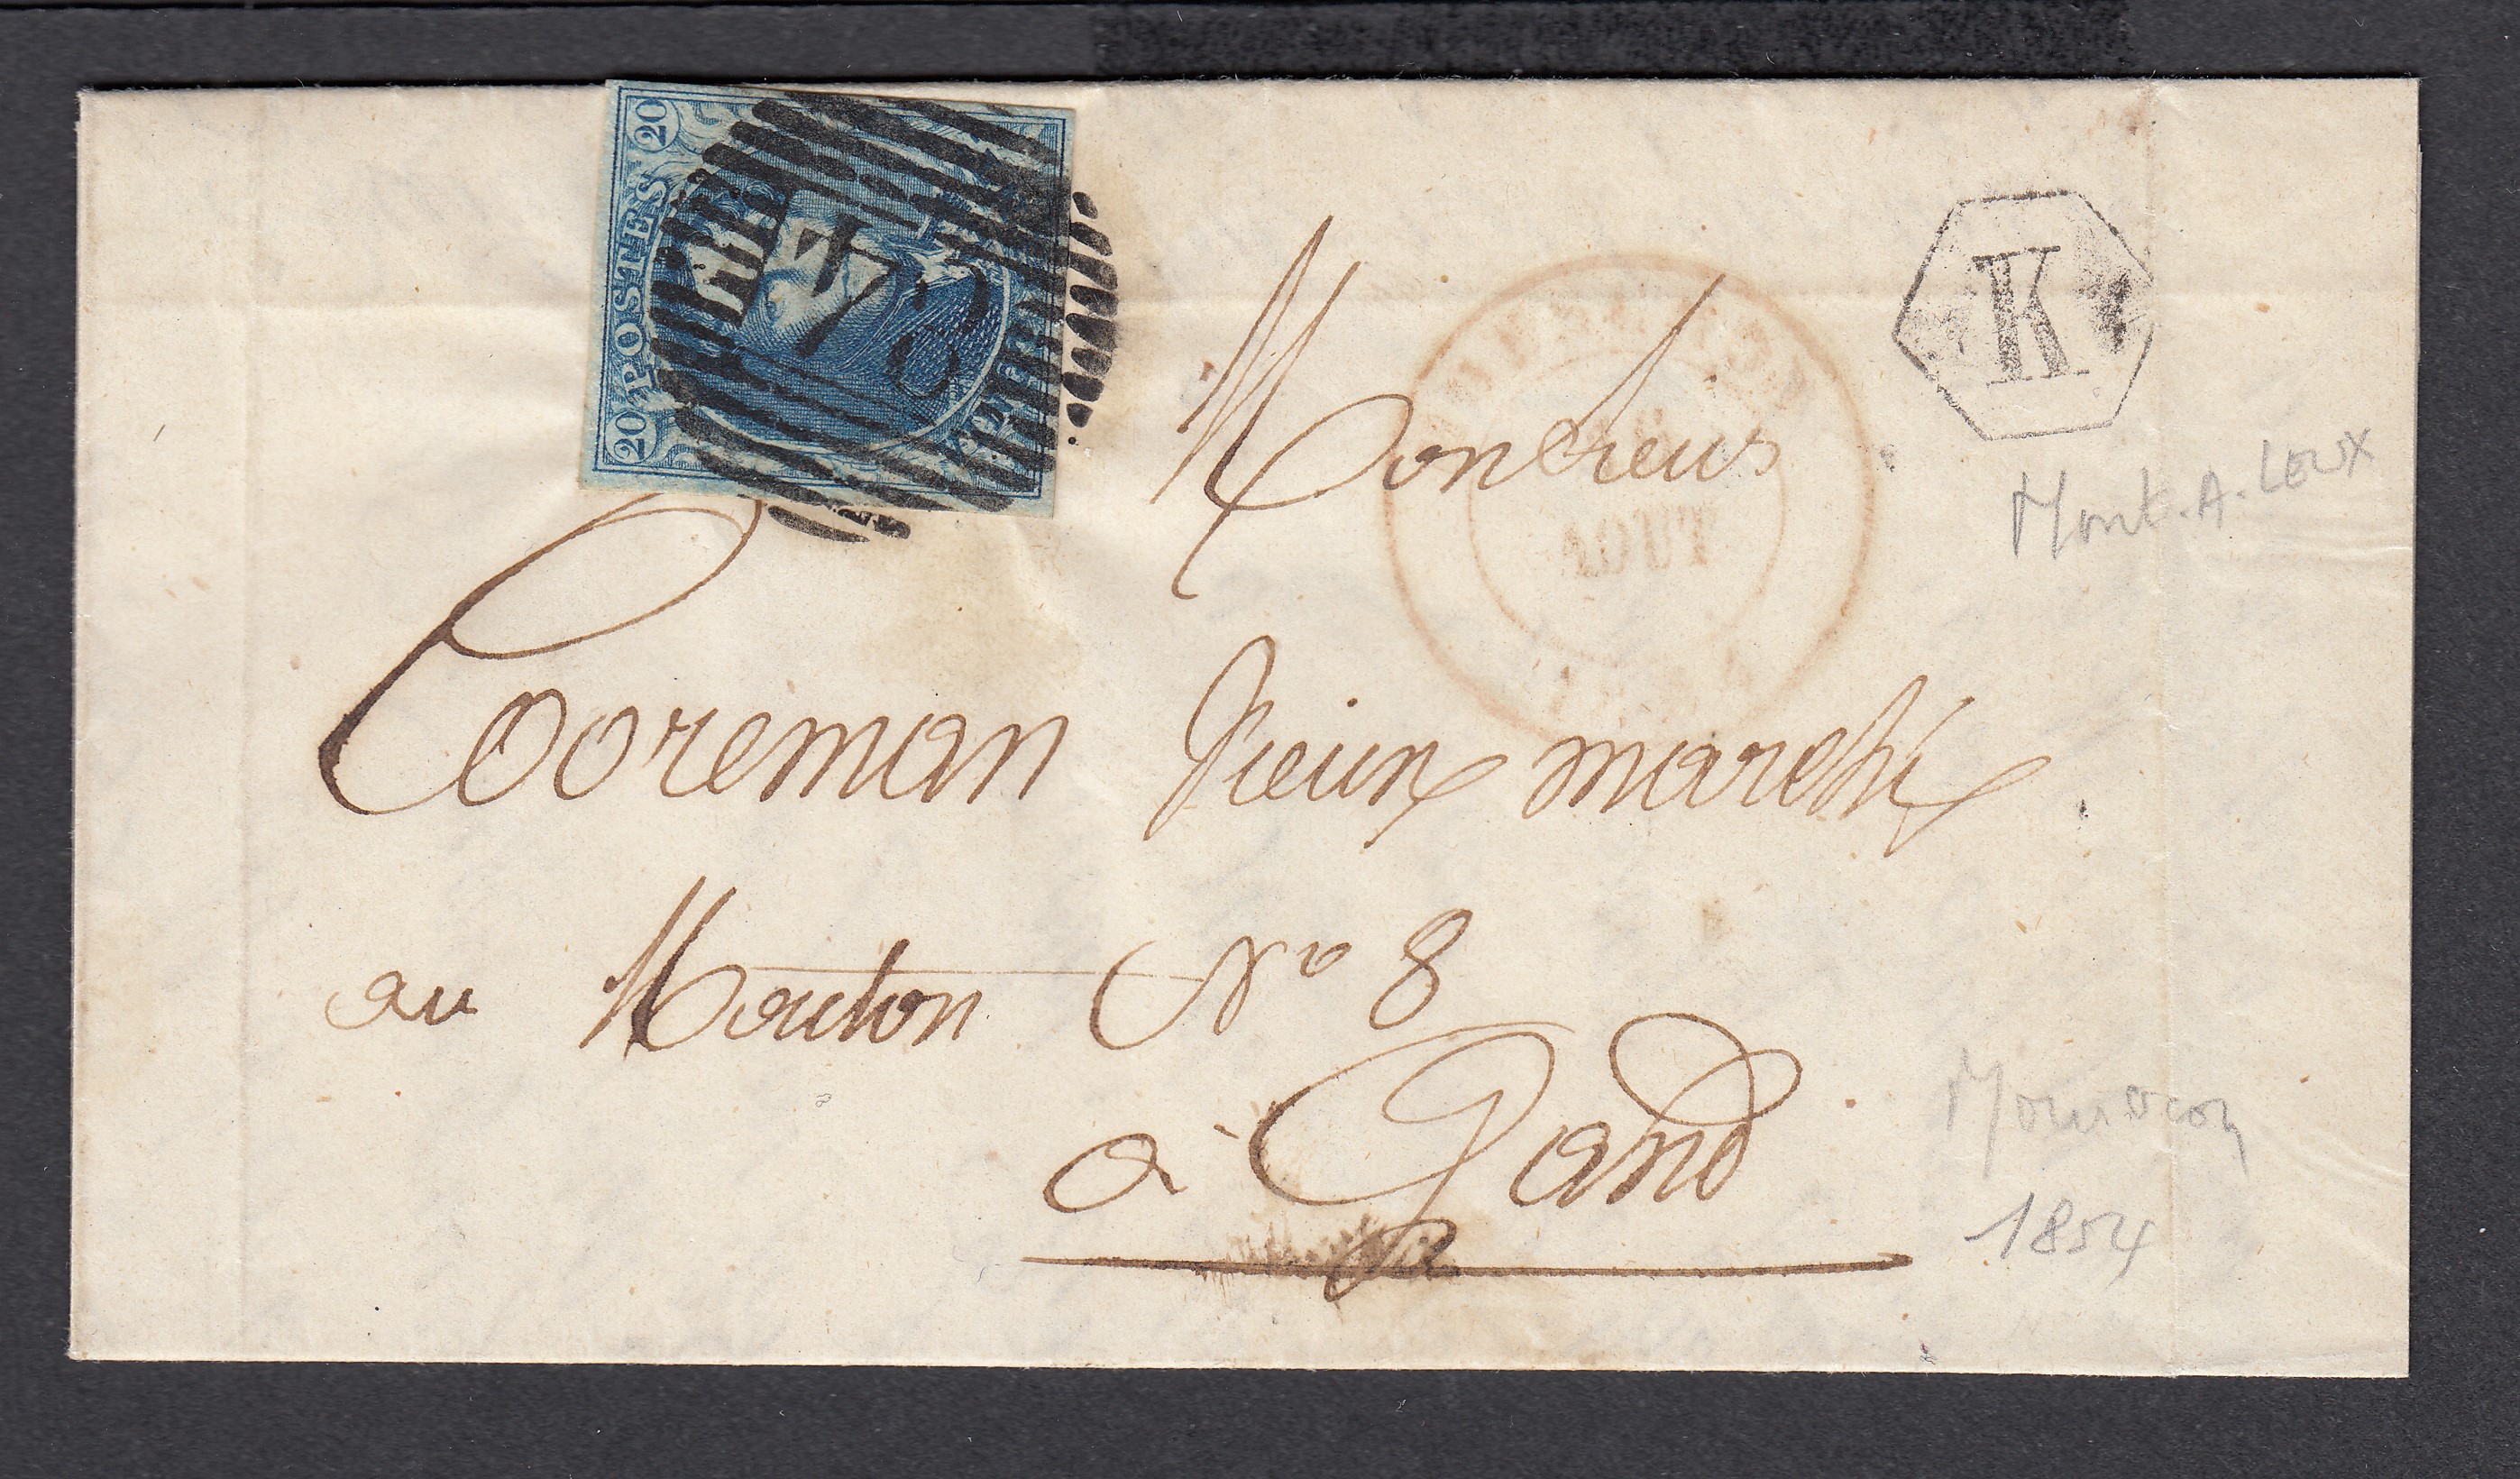 20 POSTES 20
78
K
Mont-A-Leux
Monsieur
AOUT
Cooreman Vieux marché
au Mouton No 8
à Gand
Mouscron
1854